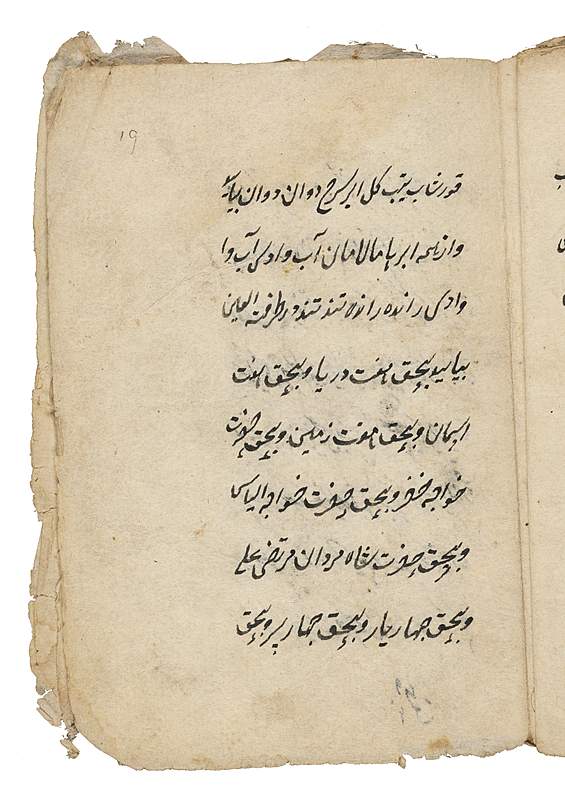 19
کل ابر سرخ دوان دوان بیائید
و از همه ابرها مالامال آب وادی آب وا
وادی رانده رانده تند تند در طرفة العین
بیائید بحق هفت دریا و بحق هفت
اسمان و بحق هفت زمین و بحق حضرت
خواجه خضر و بحق حضرت خواجه الیاس
و بحق حضرت شاه مردان مرتضی علی
و بحق چهار یار و بحق چهار پیر و بحق